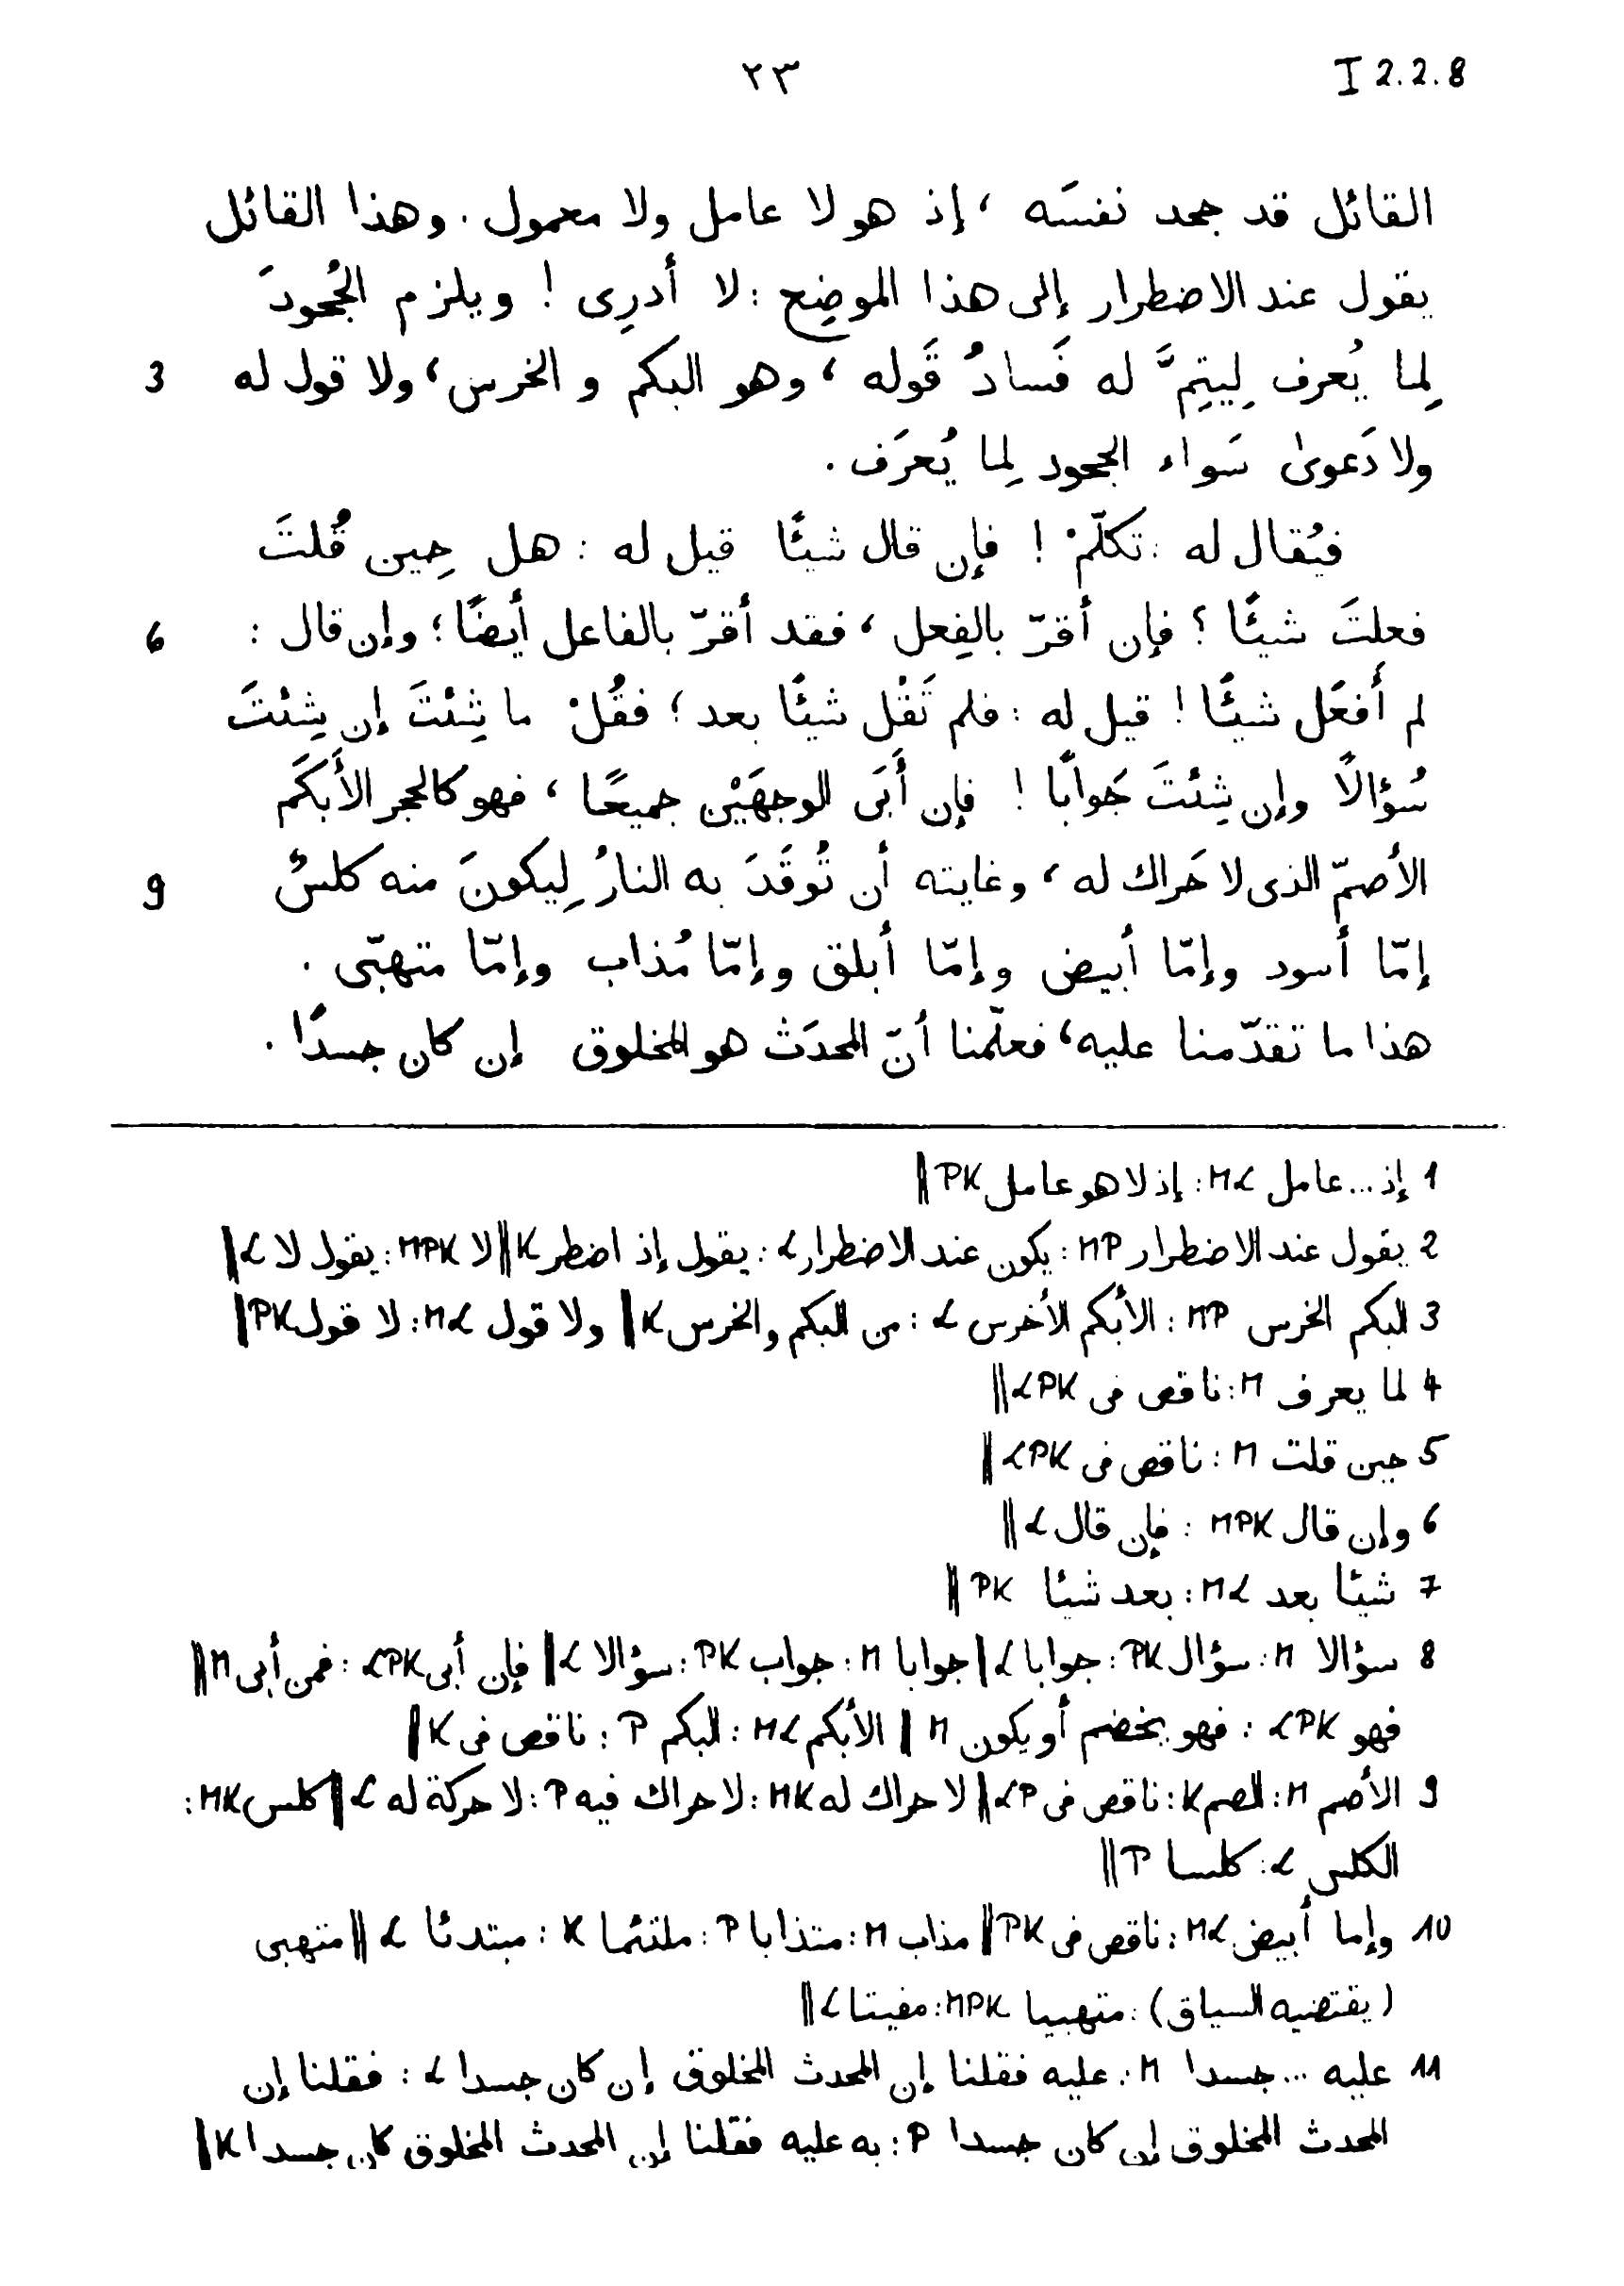 I 2.2.8 ٢٣
القائل قد جحد نفسَه ، إذ هو لا عامل ولا معمول . وهذا القائل
يقول عند الاضطرار إلى هذا الموضِع : لا أدرِى ! ويلزم الجُحودَ
لِما يُعرف لِيتِمَّ له فَسادُ قَوله ، وهو البكم و الخرس ، ولا قول له 3
ولا دَعوىٰ سَواء الجحود لِما يُعرَف .
فيُقال له : تكلّمْ ! فإن قال شيئًا قيل له : هل حِين قُلتَ
فعلتَ شيئًا ؟ فإن أقرّ بالفِعل ، فقد أقرّ بالفاعل أيضًا ؛ وإن قال : 6
لم أَفعَل شيئًا ! قيل له : فلم تَقُل شيئًا بعد ؛ فقُلْ ما شِئتَ إن شِئتَ
سُؤالًا وإن شِئتَ جَوابًا ! فإن أَبَى الوجهَيْن جميعًا ، فهو كالحجر الأَبكَم
الأَصمّ الذى لا حَراك له ، وغايته أن تُوقَدَ به النارُ لِيكونَ منه كلسٌ 9
إمّا أسود وإمّا أبيض وإمّا أبلق وإمّا مُذاب وإمّا متهبّى .
هذا ما تقدّمنا عليه ، فعلّمنا أنّ المحدَث هو المخلوق إن كان جسدًا .
1 إذ ... عامل ML : إذ لا هو عامل PK ||
2 يقول عند الاضطرار MP : يكون عند الاضطرار L : يقول إذ اضطر K || لا MPK : يقول لا L ||
3 البكم الخرس MP : الأبكم الأخرس L : من البكم والخرس K || ولا قول ML : لا قول PK ||
4 لما يعرف M : ناقص فى LPK ||
5 حين قلت M : ناقص فى LPK ||
6 وإن قال MPK : فإن قال L ||
7 شيئا بعد ML : بعد شيئا PK ||
8 سؤالا M : سؤال PK : جوابا L || جوابا M : جواب PK : سؤالا L || فإن أبى LPK : فمن أبى M ||
فهو LPK : فهو يخضم أو يكون M || الأبكم ML : البكم P : ناقص فى K ||
9 الأصم M : الصم K : ناقص فى LP || لا حراك له MK : لا حراك فيه P : لا حركة له L || كلس MK :
الكلس L : كلسا P ||
10 وإما أبيض ML : ناقص فى PK || مذاب M : متذابا P : ملتئما K : مبتدئا L || متهبى
(يقتضيه السياق) : متهبيا MPK : مفيتا L ||
11 عليه ... جسدا M : عليه فقلنا إن المحدث المخلوق إن كان جسدا L : فقلنا إن
المحدث المخلوق إن كان جسدا P : به عليه فقلنا إن المحدث المخلوق كان جسدا K ||